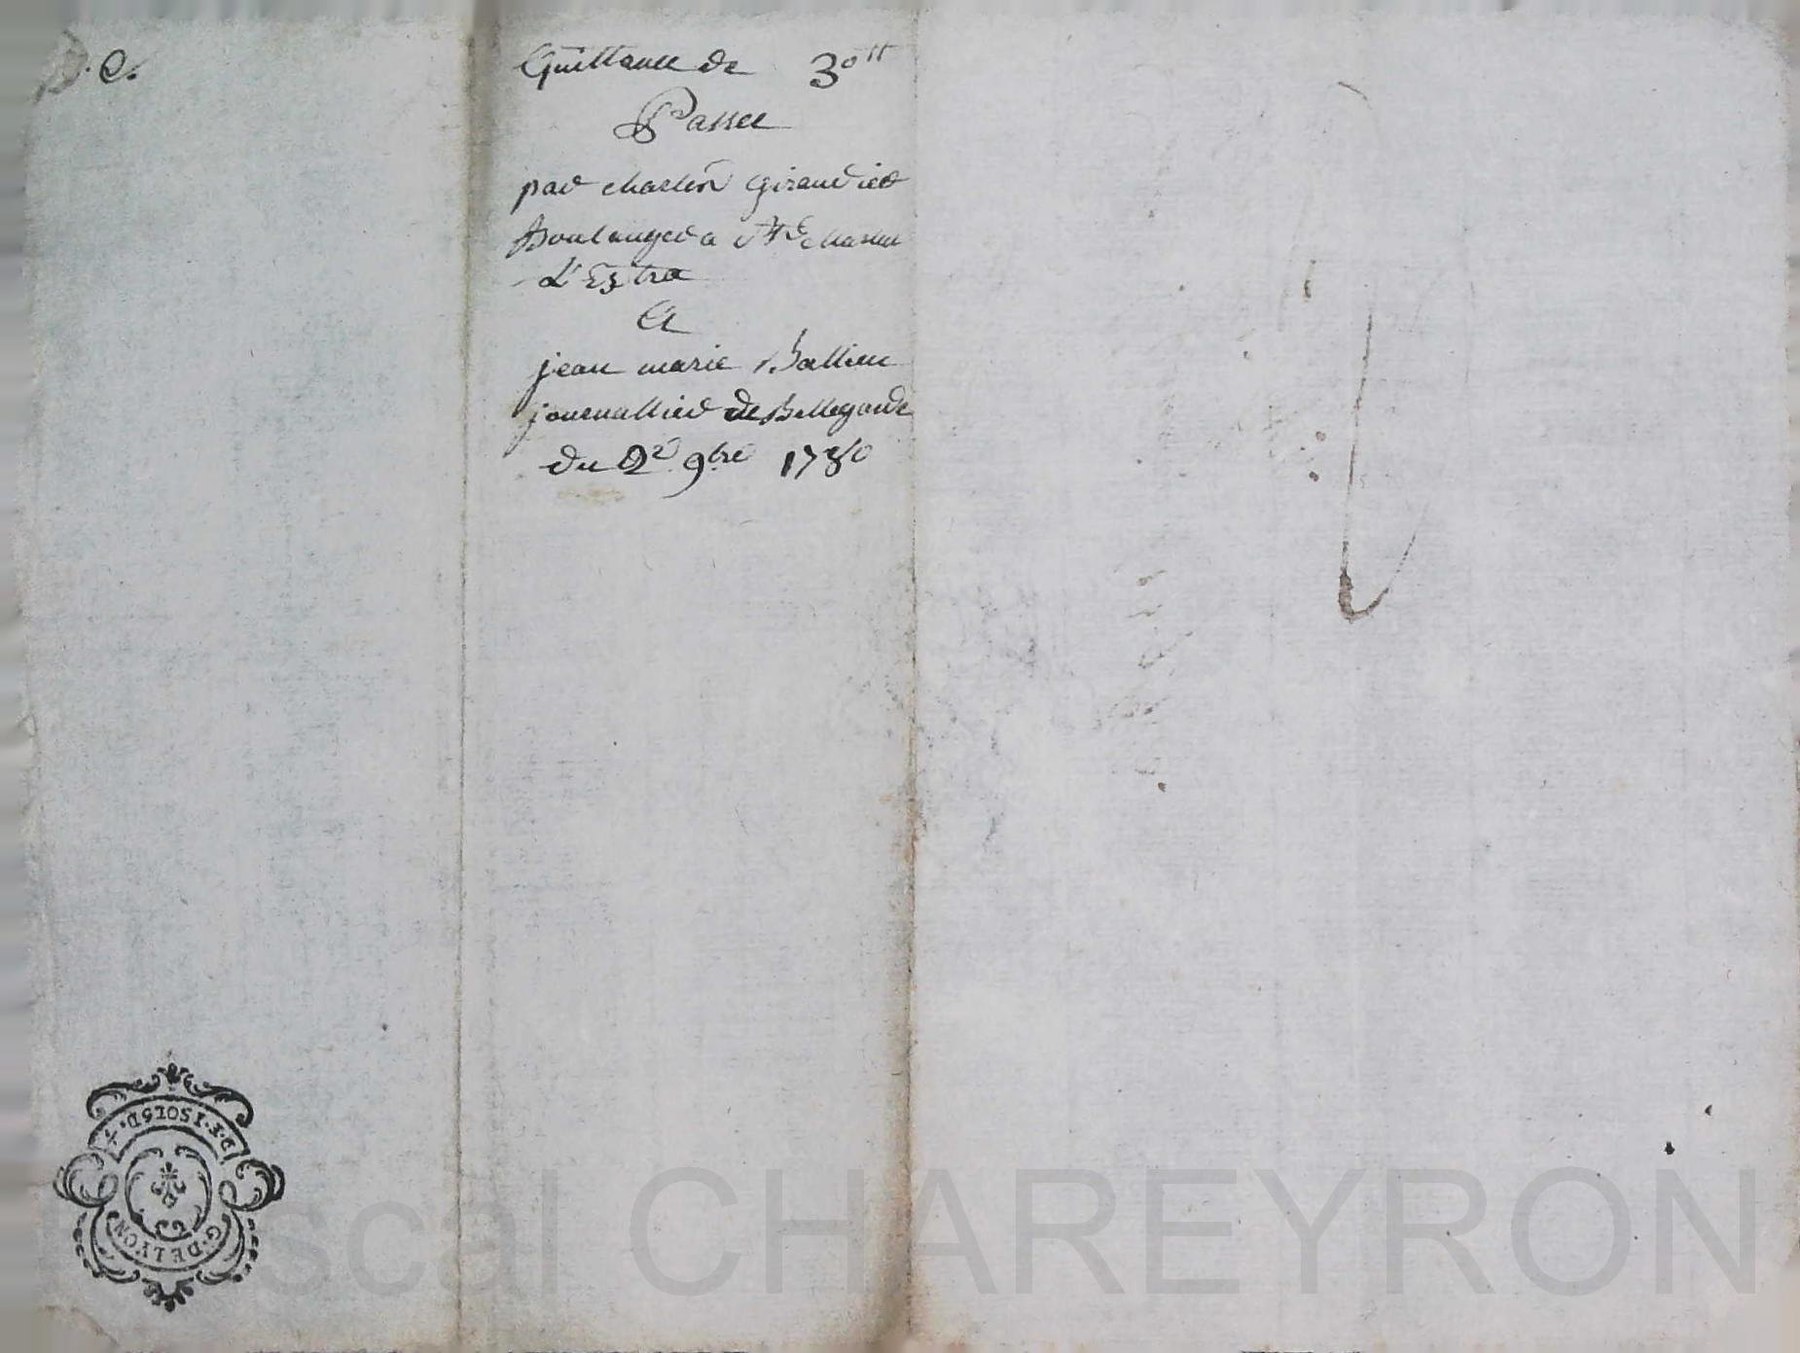 .e.
Quittance de 30tt
Passee
par charles Giraudier
Boulanger a St charles
L'Estra
A
jean marie Ballieu
journallier de Bellegarde
du 2e 9bre 1780
D.F. I SOL 5 D.
G. DE LYON
scal CHAREYRON